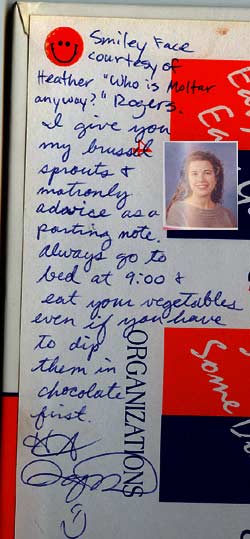 Smiley Face
courtesy of
Heather "Who is Moltar
anyway?" Rogers.
I give you
my brussel
sprouts &
motionly
advice as a
parting note.
Always go to
bed at 9:00 &
eat your vegetables
even if you have
to dip
them in
chocolate
first.
ORGANIZATIONS
Some